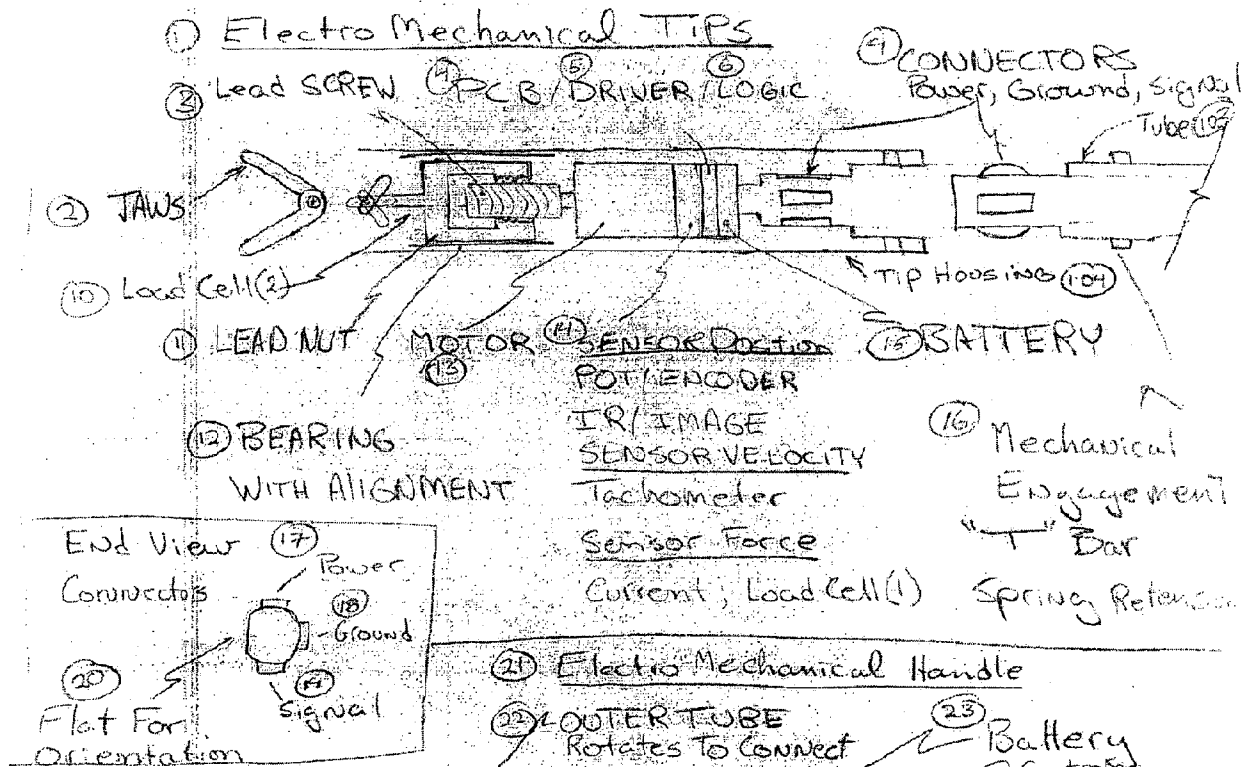 ① Electro Mechanical TiPS
③ Lead SCREW ④ PCB/⑤ DRIVER/⑥ LOGIC
⑨ CONNECTORS
Power, Ground, Signal
Tube
② JAWS
⑩ Load Cell(2)
TIP HOUSING (104)
⑪ LEAD NUT
MOTOR
⑬
⑭ SENSOR Position
POT/ENCODER
IR/IMAGE
SENSOR VELOCITY
Tachometer
Sensor Force
Current, Load Cell(1)
⑮ BATTERY
⑫ BEARING
WITH AlIGNMENT
⑯ Mechanical
Engagement
"T" Bar
Spring
End View ⑰
Connectors
Power
⑱
Ground
Signal
⑳
Flat For
Orientation
㉑ Electro Mechanical Handle
㉒ OUTER TUBE
Rotates To Connect
㉓ Battery